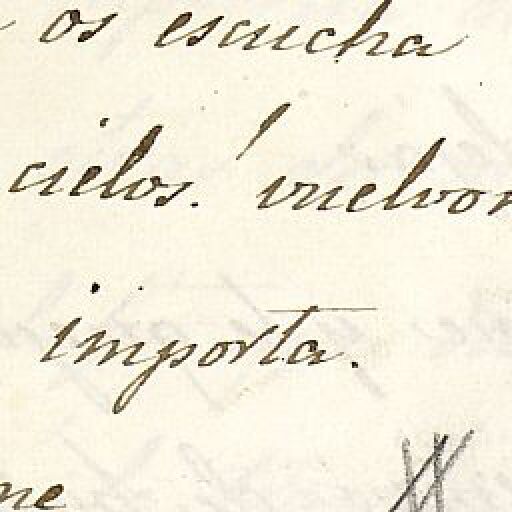 os escucha
cielos! vuelvon
importa.
me